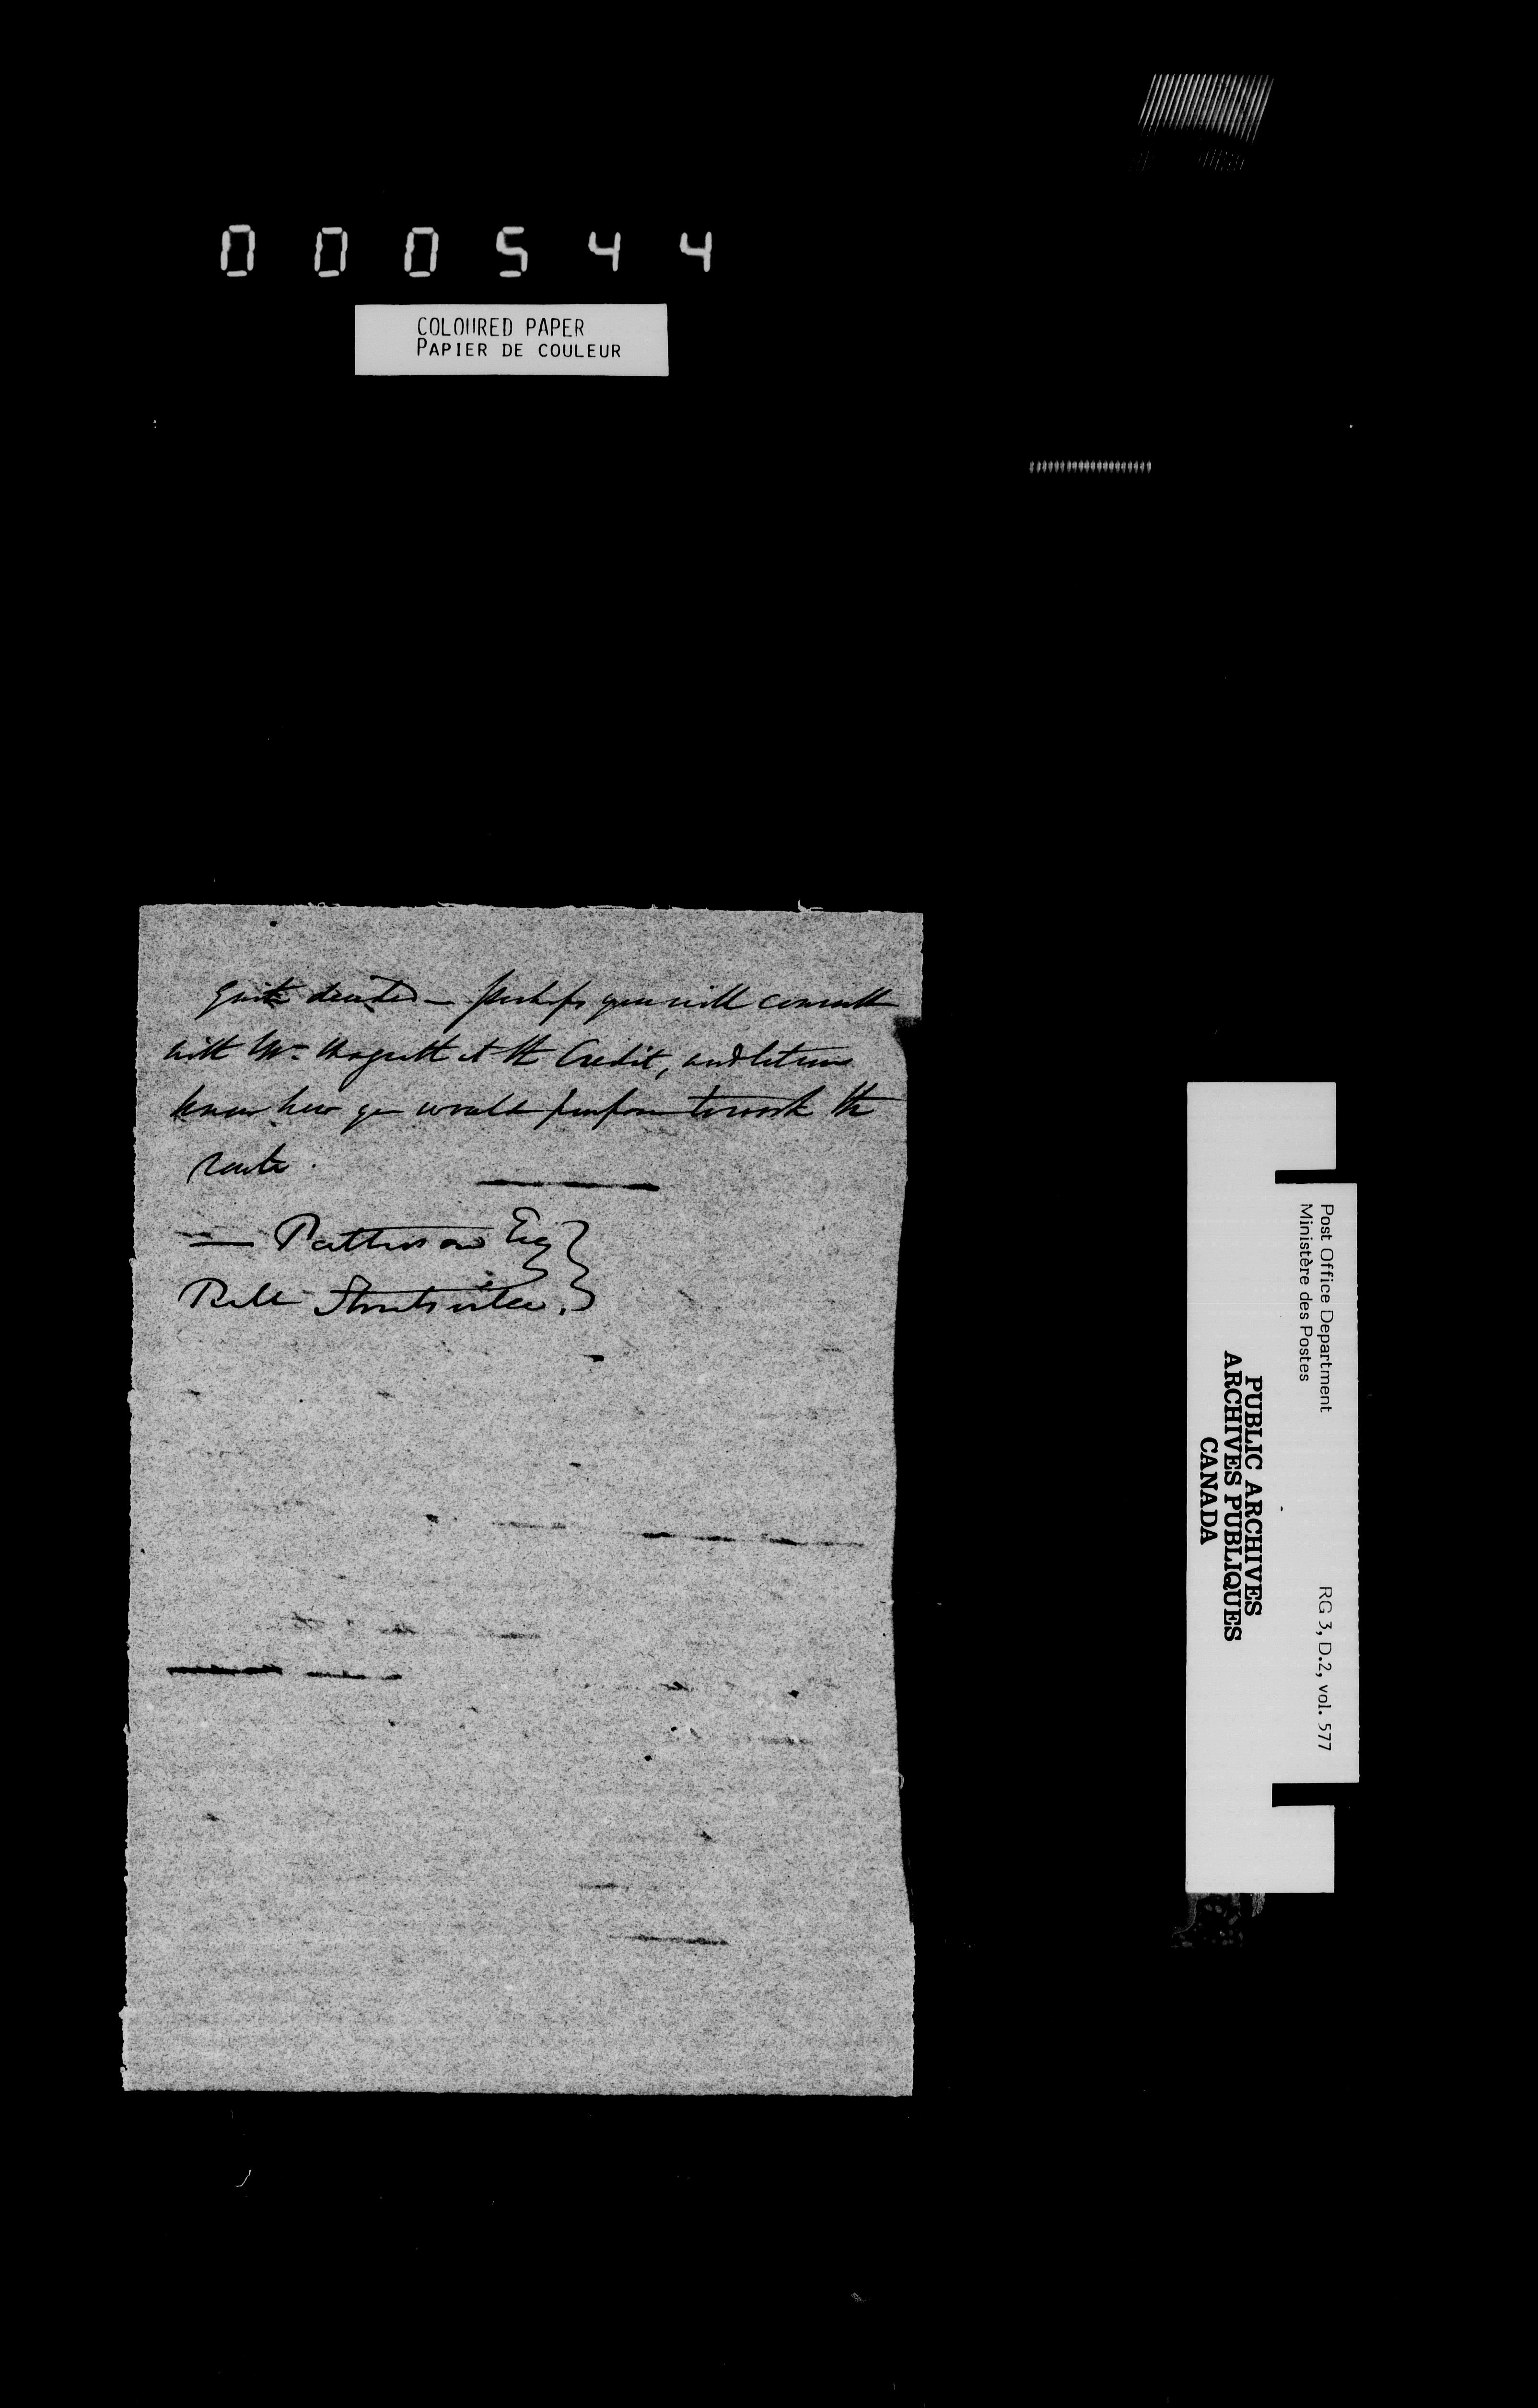 000544
COLOURED PAPER
PAPIER DE COULEUR
quite decided — Perhaps you will consult
with Mr. at the Credit, and let me
know how you would propose to work the
route.
— Patterson Esq
Stoutsville.
Post Office Department
Ministère des Postes
RG 3, D.2, vol. 577
PUBLIC ARCHIVES
ARCHIVES PUBLIQUES
CANADA